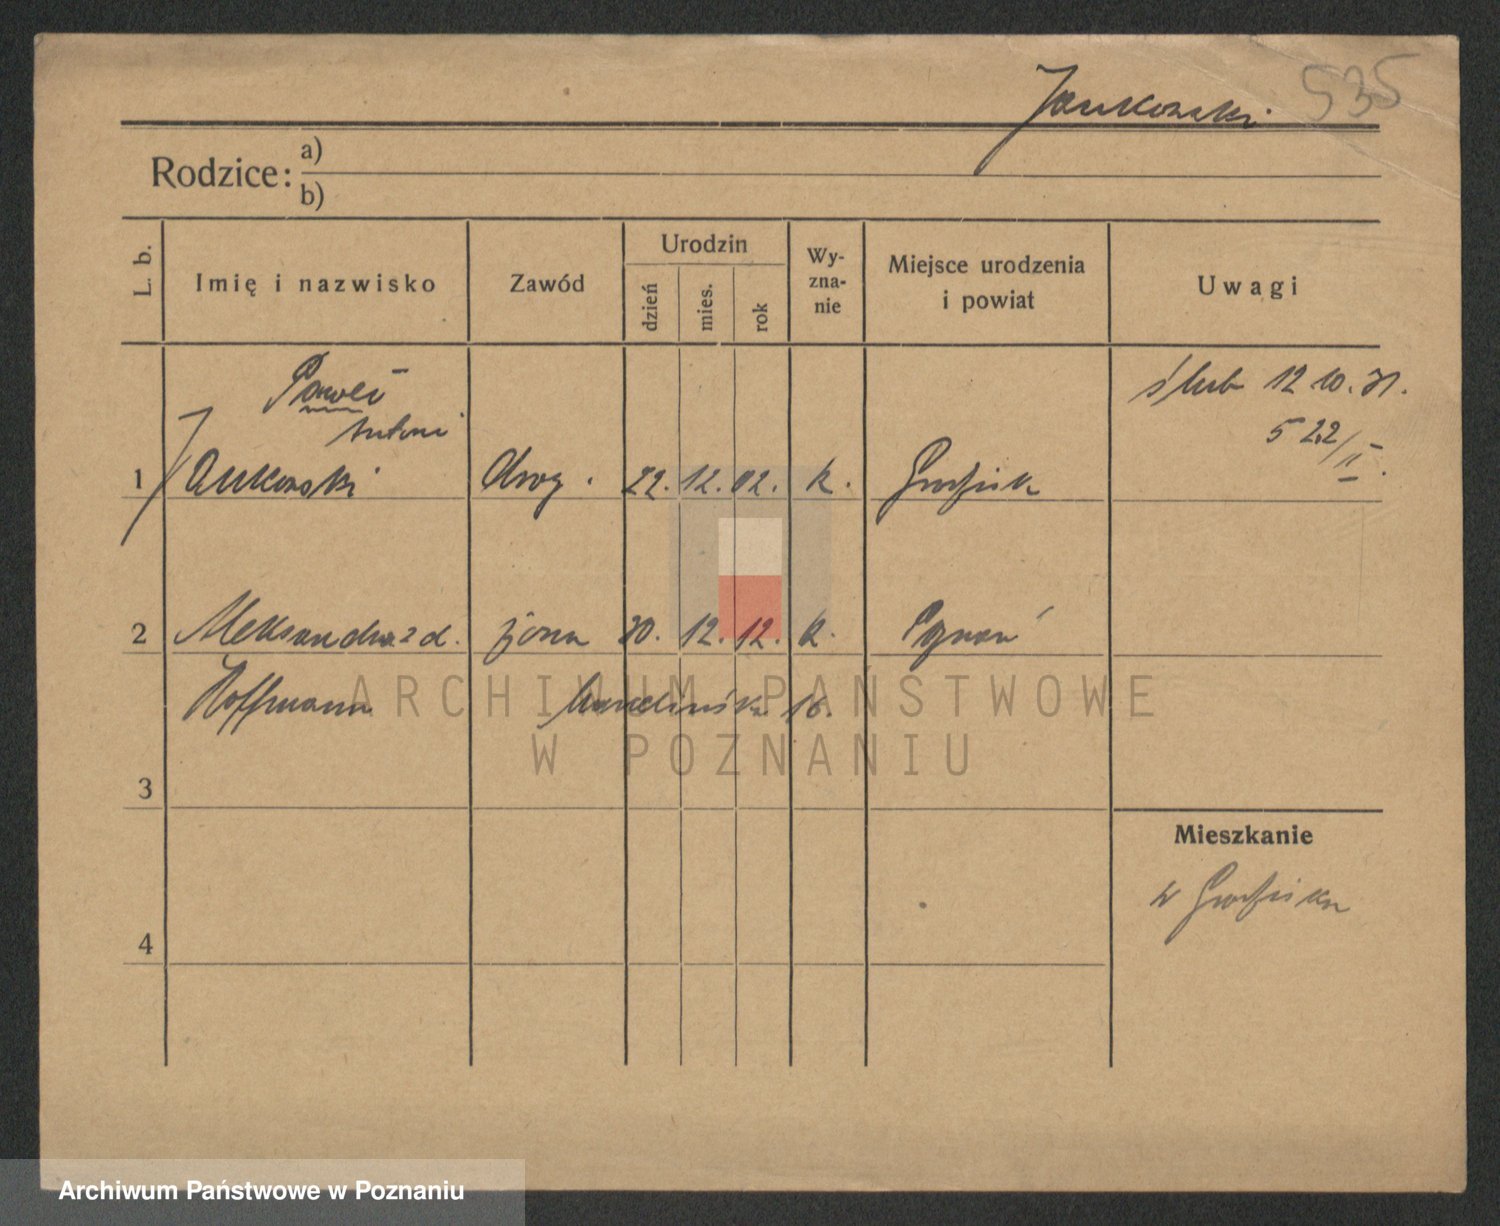 Jankowski 535
Rodzice: a)
b)
L. b.
Imię i nazwisko
Zawód
Urodzin
dzień
mies.
rok
Wy-
zna-
nie
Miejsce urodzenia
i powiat
Uwagi
Paweł
Antoni
1 Jankowski drog. 22. 12. 02. k. Grodzisk
ślub 12 10. 31.
522/II.
2 Aleksandra z d. żona 30. 12. 12. k. Poznań
Hoffmann 16.
3
4
Mieszkanie
w Grodzisku
ARCHIWUM PAŃSTWOWE
W POZNANIU
Archiwum Państwowe w Poznaniu